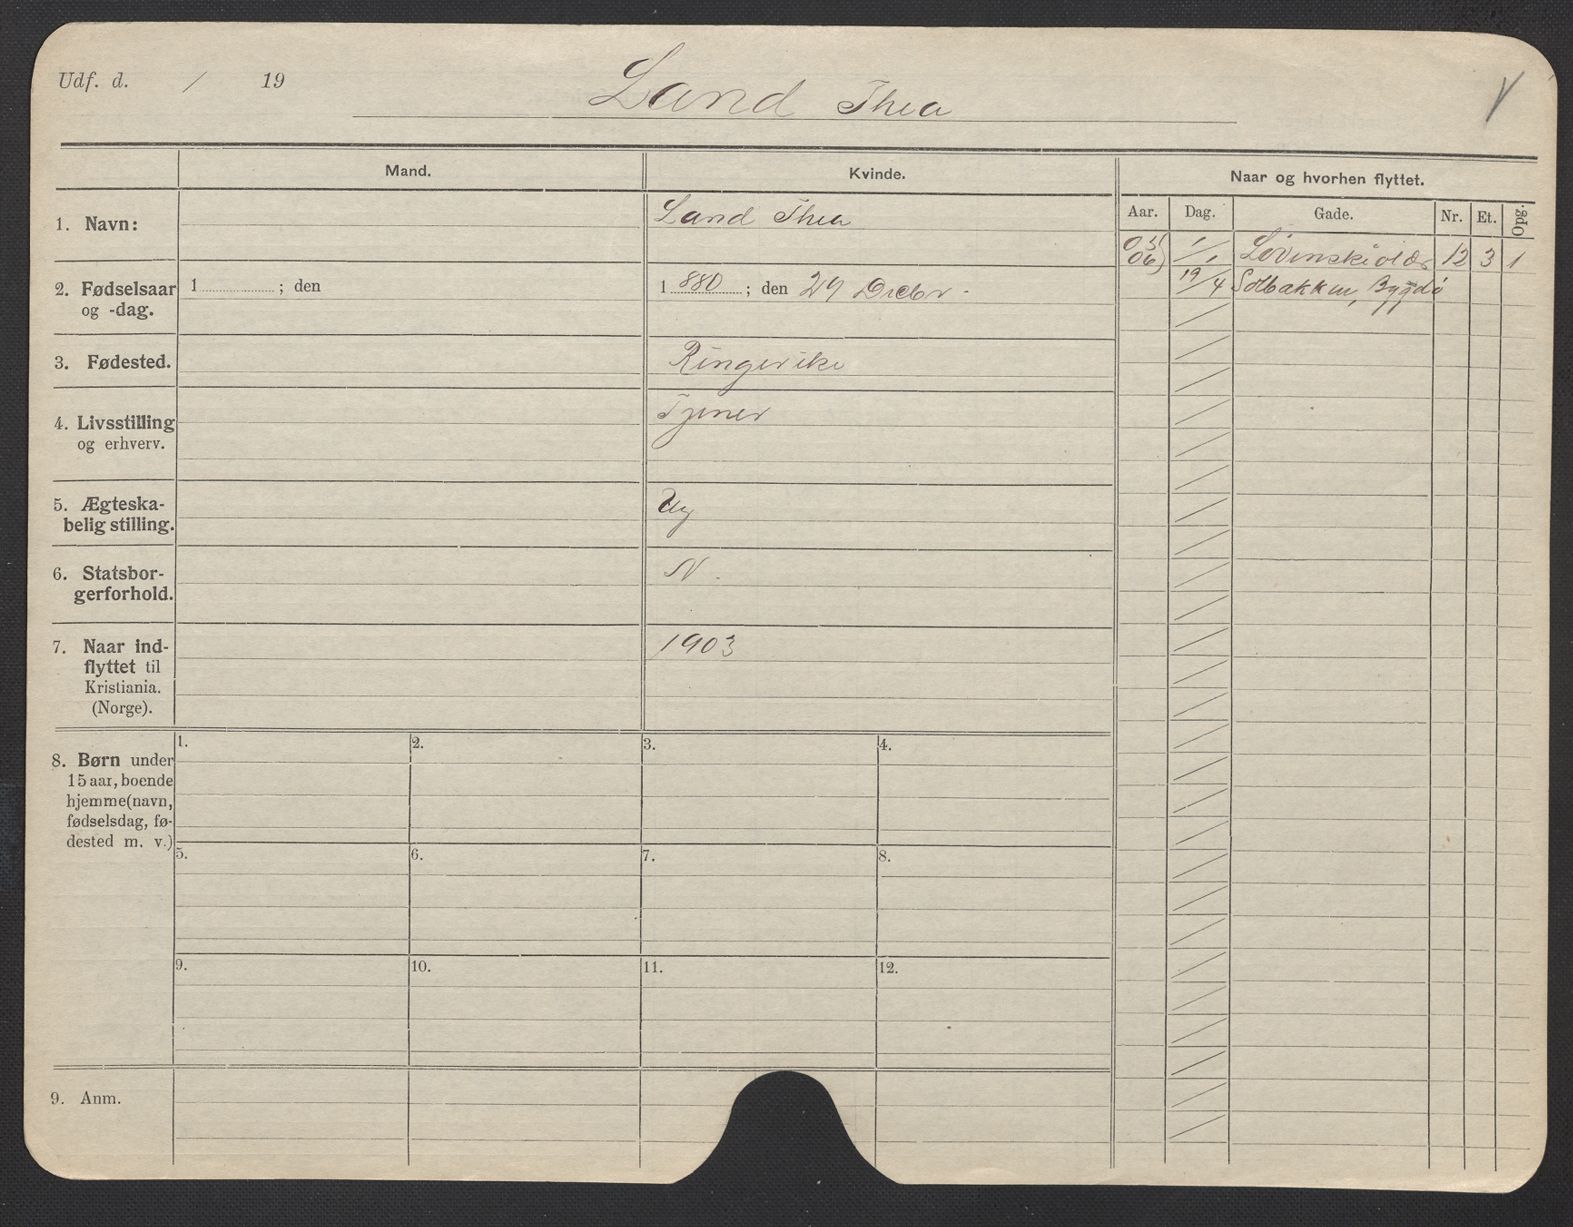 Udf. d. / 19
Land Thea
V
Mand.
Kvinde.
Naar og hvorhen flyttet.
Aar. Dag. Gade. Nr. Et. Opg.
1. Navn:
Land Thea
05 1/1 Løvenskiolds 12 3 1
06
19/4 Solbakken, Bygdø
2. Fødselsaar
og -dag.
1 ; den
1 880 ; den 29 Decbr.
3. Fødested.
Ringerike
4. Livsstilling
og erhverv.
Tjener
5. Ægteska-
belig stilling.
Ug
6. Statsbor-
gerforhold.
N.
7. Naar ind-
flyttet til
Kristiania.
(Norge).
1903
8. Børn under
15 aar, boende
hjemme (navn,
fødselsdag, fø-
dested m. v.)
1. 2. 3. 4.
5. 6. 7. 8.
9. 10. 11. 12.
9. Anm.